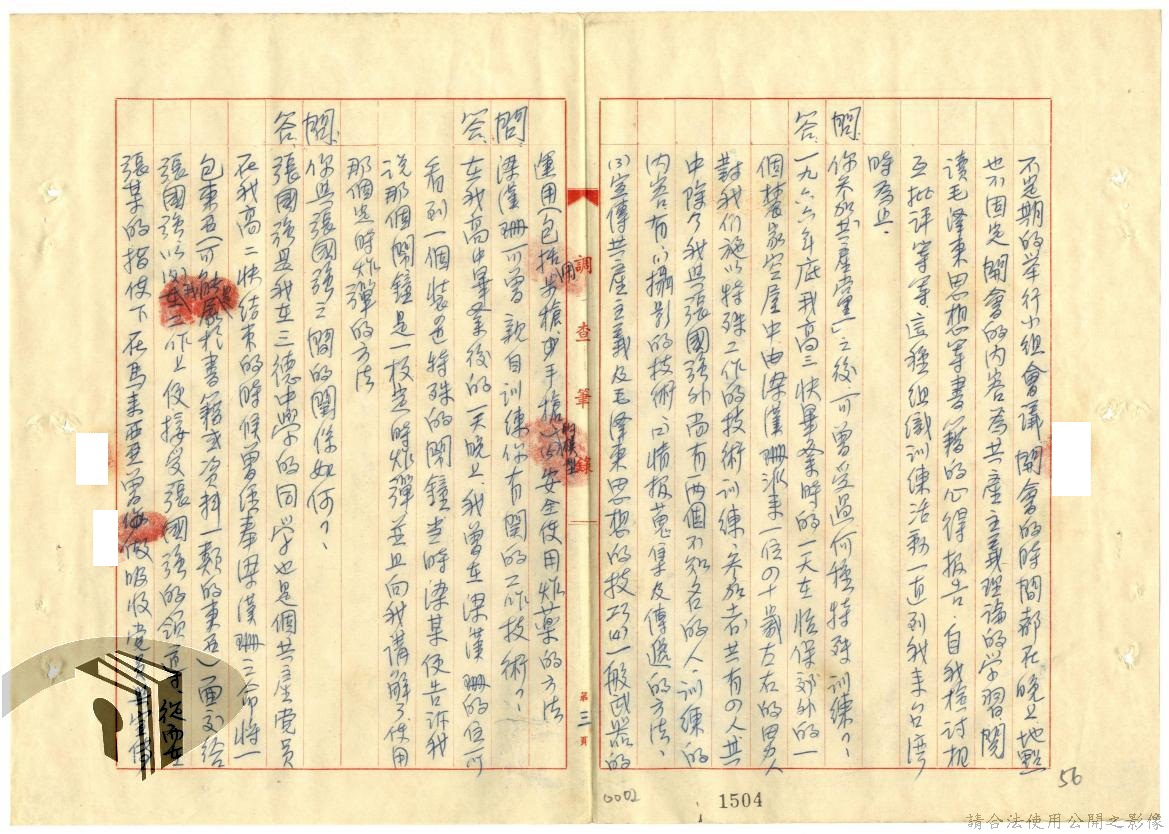 不定期的举行小組會議,開會的時間都在晚上,地點
也不固定,開會的內容為共產主義理論的学習,閱
讀毛澤東思想等書籍的心得报告,自我檢討相
互批评等等,這種組織訓練活動一直到我来台湾
時為止.
問 你参加「共產黨」之後可曾受過何種特殊訓練?
答 一九六六年底我高三快畢業時的一天在怡保郊外的一
個農家空屋中,由梁漢珊派来一位四十歲左右的男人
對我们施以特殊工作的技術訓練,参加者共有四人其
中除了我與張國強外尚有两個不知名的人,訓練的
内容有(1)攝影的技術(2)情报蒐集及傳遞的方法、
(3)宣傳共產主義及毛澤東思想的技巧(4)一般武器的
調查筆錄
第三頁
運用(包括步槍,手槍的模型)(5)安全使用炸藥的方法
問 梁漢珊可曾親自訓練你有関的工作技術?
答 在我高中畢業後的一天晚上,我曾在梁漢珊的住所
看到一個裝置特殊的閙鐘當時梁某便告訴我
说那個閙鐘是一枚定時炸彈並且向我講解了使用
那個定時炸彈的方法
問 你與張國強之間的関係如何?
答 張國強是我在三德中學的同学也是個共產党員
在我高二快结束的時候曾經奉梁漢珊之命將一
包東西(可能屬於書籍或資料一類的東西)面交给
張國強以後我在工作上便接受張國強的領導,從而在
張某的指使下在馬来西亞曾做吸收党員
0002
1504
56
請合法使用公開之影像